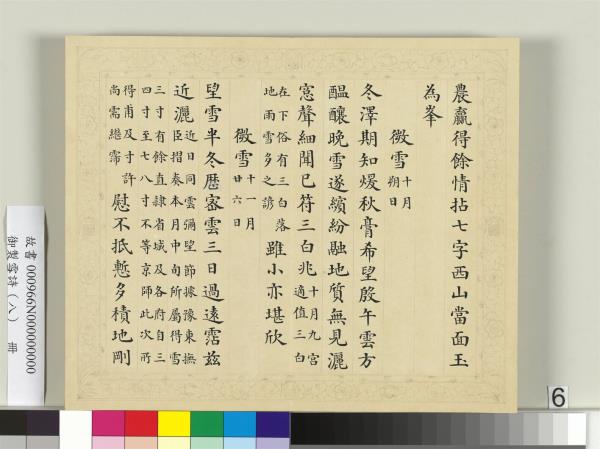 農贏得餘情拈七字西山當面玉
為峯
微雪十月
朔日
冬澤期知煖秋膏希望殷午雲方
醖釀晚雪遂繽紛融地質無見灑
窓聲細聞已符三白兆十月九宮
適值三白
在下俗有三白落
地雨雪多之諺雖小亦堪欣
微雪十一月
廿六日
望雪半冬厯密雲三日過遠霑茲
近灑近日同雲彌望節據豫東撫
臣摺奏本月中旬所屬得雪
三寸有餘直隷省城及各府自三
四寸至七八寸不等京師此次所
得甫及寸許
尚需繼霈慰不抵慙多積地剛
故書 000966N000000000
御製雪詩(八) 冊
6